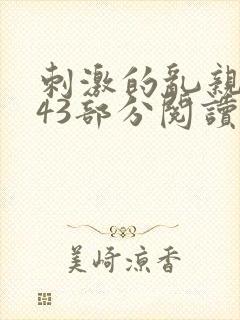 刺激的亂親
43部分閱讀
美崎凉香